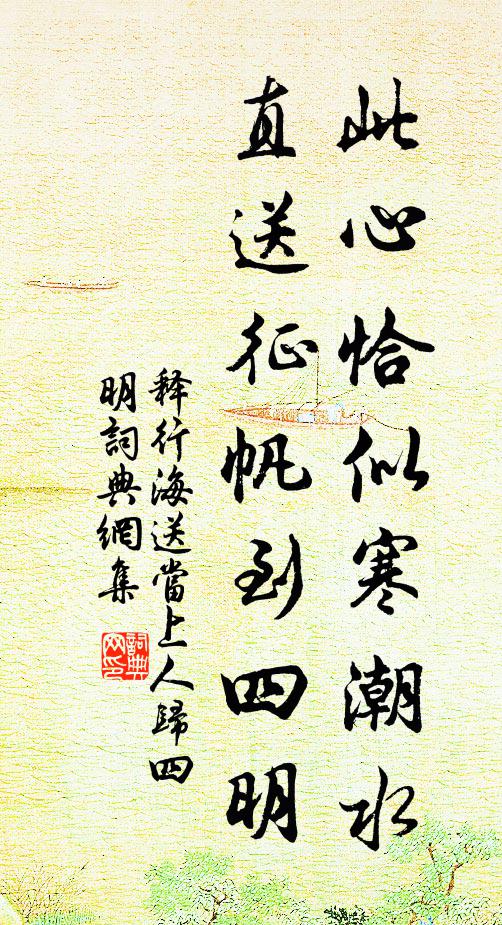 此心恰似寒潮水
直送征帆到四明
释行海送當上人歸四
明詞典網集
詞典
网印